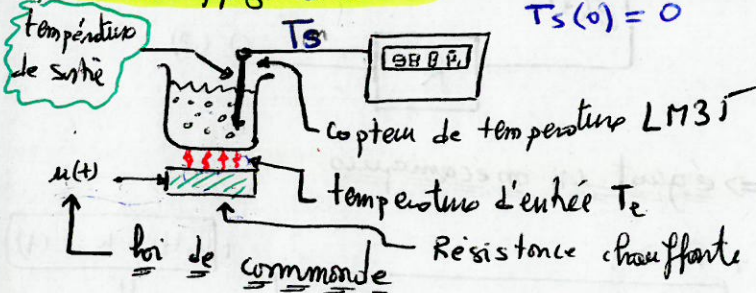 Ts(0) = 0
température
de sortie
Ts
capteur de température LM35
u(t)
température d'entrée Te
Résistance chauffante
loi de commande